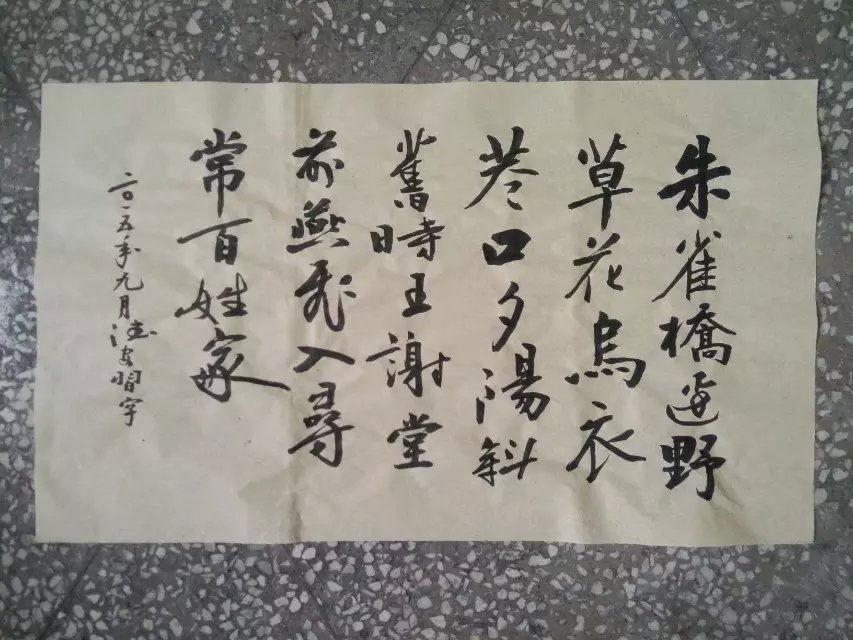 朱雀橋邊野
草花烏衣
巷口夕陽斜
舊時王謝堂
前燕飛入尋
常百姓家
二〇一五年九月
習字